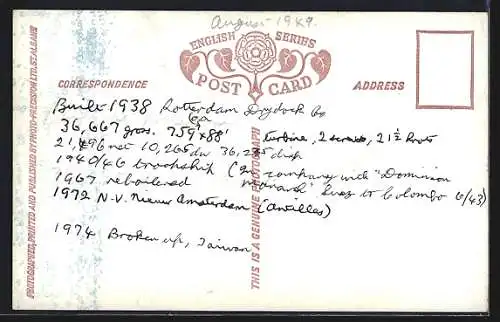 August 1949
ENGLISH SERIES
POST CARD
CORRESPONDENCE
ADDRESS
Built 1938 Rotterdam Drydock Co
36,667 gross. 759' x 88' turbine, 2 screws, 21½ knots
21,496 net 10,265 dw 36,235 disp
1940/46 troopship (in company with "Dominion
1967 reboilered monarch" Suez to Colombo 6/43)
1972 N.V. Nieuw Amsterdam (Antilles)
1974 Broken up, Taiwan
PHOTOGRAPHED, PRINTED AND PUBLISHED BY PHOTO-PRECISION LTD. ST. ALBANS
THIS IS A GENUINE PHOTOGRAPH